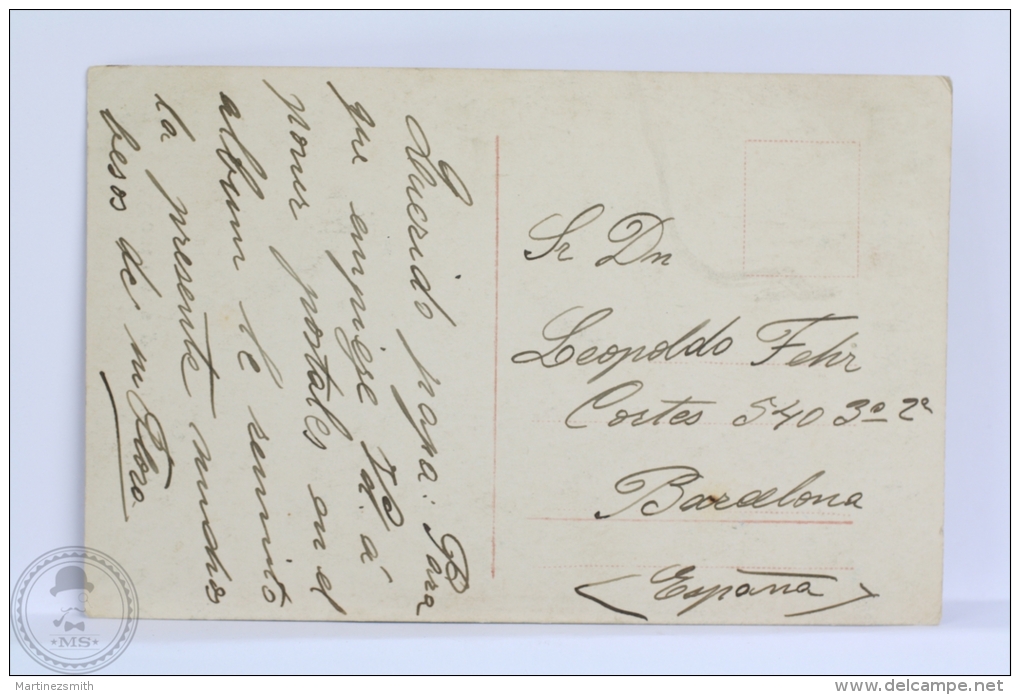 Querido papa: Para
que empiese Vd. á
poner postales en el
album le remito
la presente muchos
besos de mi Flora
Sr Dn
Leopoldo Fehr
Cortes 540 3º 2ª
Barcelona
(España)
MS
Martinezsmith
delcampe.net